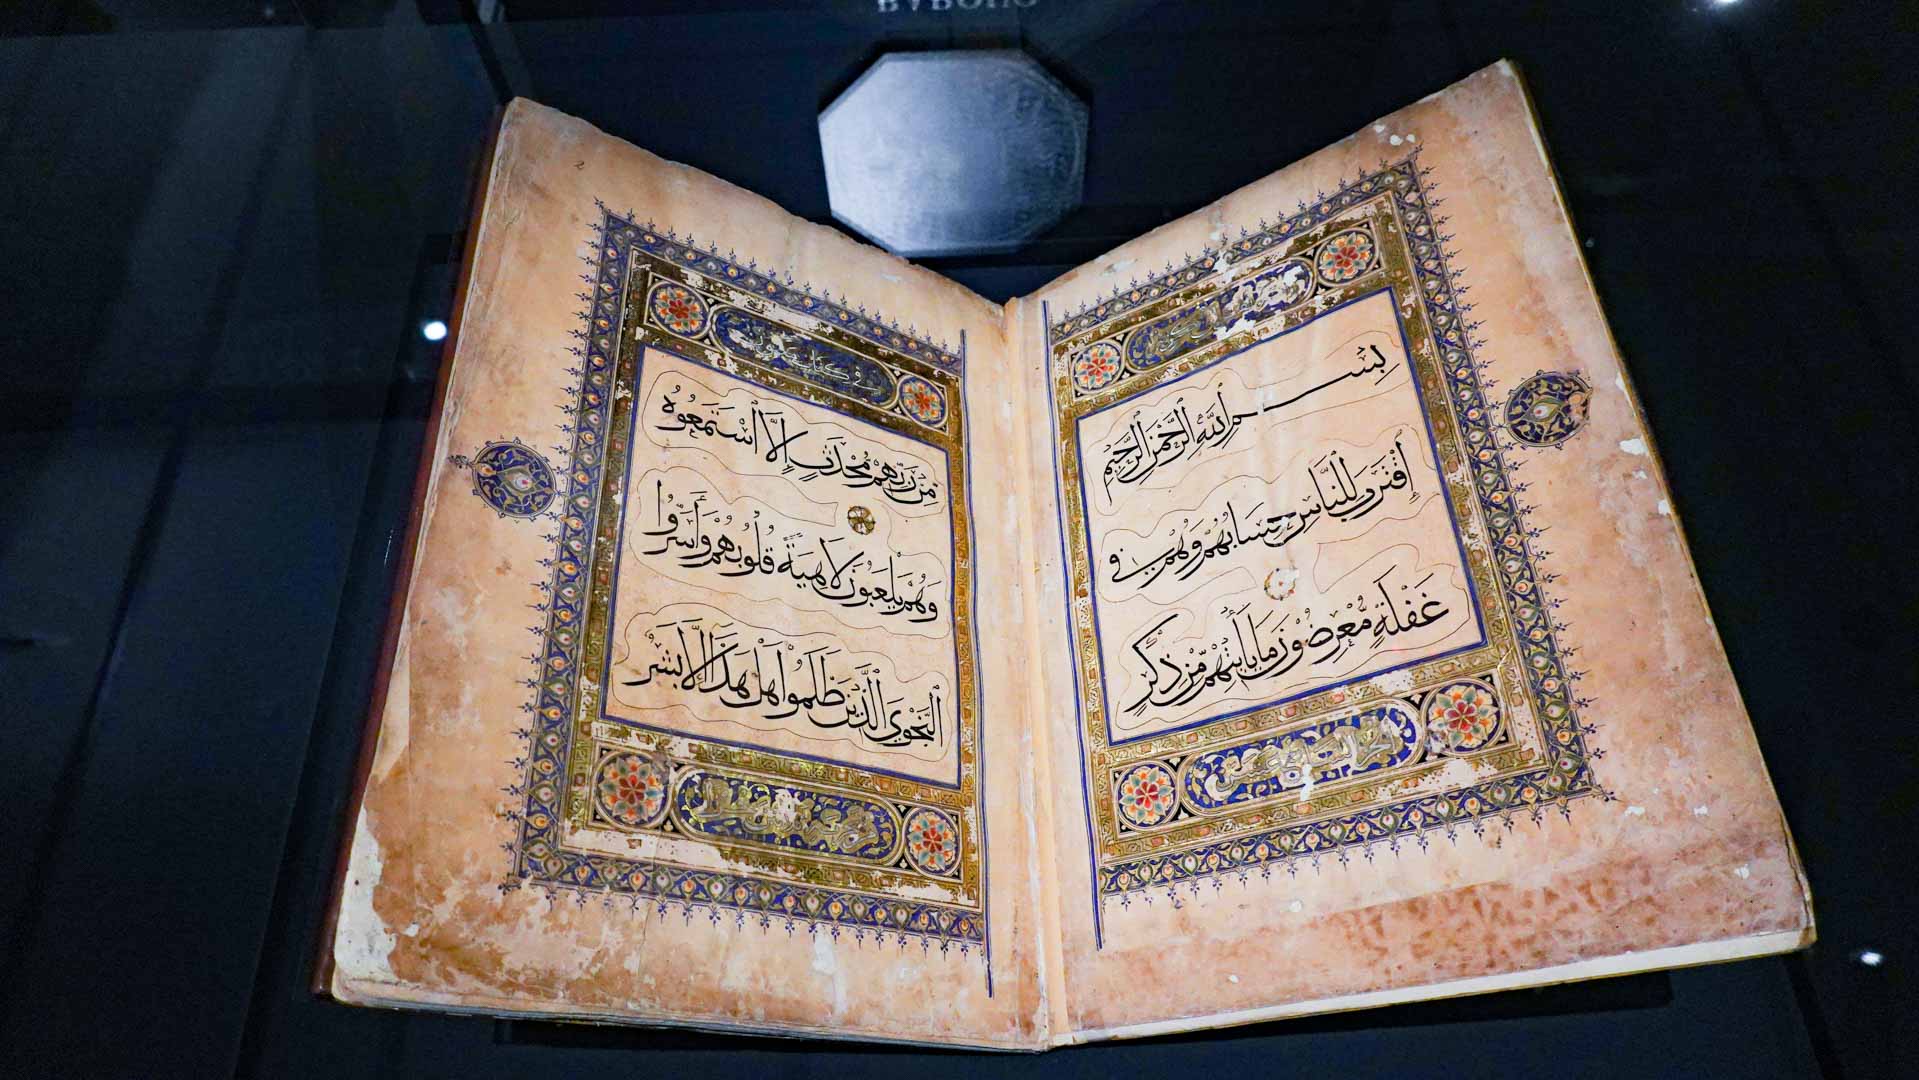 بِسْمِ اللَّهِ الرَّحْمَنِ الرَّحِيمِ
اِقْتَرَبَ لِلنَّاسِ حِسَابُهُمْ وَهُمْ فِي
غَفْلَةٍ مُّعْرِضُونَ مَا يَأْتِيهِمْ مِّنْ ذِكْرٍ
2
في كتاب مكنون
مِّن رَّبِّهِمْ مُحْدَثٍ إِلَّا اسْتَمَعُوهُ
وَهُمْ يَلْعَبُونَ لَاهِيَةً قُلُوبُهُمْ وَأَسَرُّوا
النَّجْوَى الَّذِينَ ظَلَمُوا هَلْ هَذَا إِلَّا بَشَرٌ